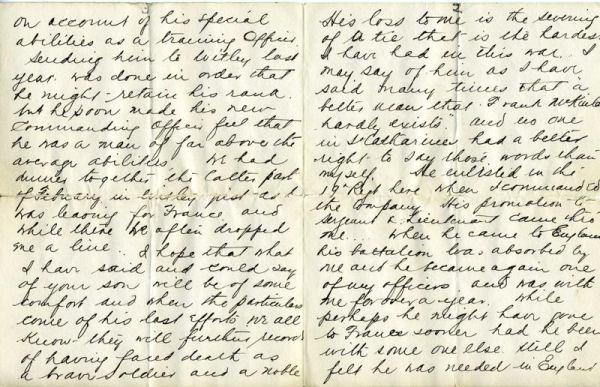 on account of his special
abilities as a training Officer.
Sending him to Witley last
year was done in order that
he might retain his rank
but he soon made his new
Commanding Officer feel that
he was a man of far above the
average abilities. We had
dinner together the latter part
of February in just as I
was leaving for France and
while there we often dropped
me a line... I hope that what
I have said and could say
of your son will be of some
comfort and when the particulars
come of his last efforts we all
know they will further record
of having faced death as
a brave soldier and a noble
2
His loss to me is the severing
of a tie that is the hardest
I have had in this war. I
may say of him as I have
said many times that a
better man than "Frank
hardly exists" and no one
in St Catharines had a better
right to say those words than
myself. He enlisted in the
19th Regt here when I commanded
the Company. His promotion to
Sergeant & Lieutenant came thro
me... When he came to England
his battalion was absorbed by
me and he became again one
of my officers and was with
me for over a year. While
perhaps he might have gone
to France sooner had he been
with some one else. Still I
felt he was needed in England